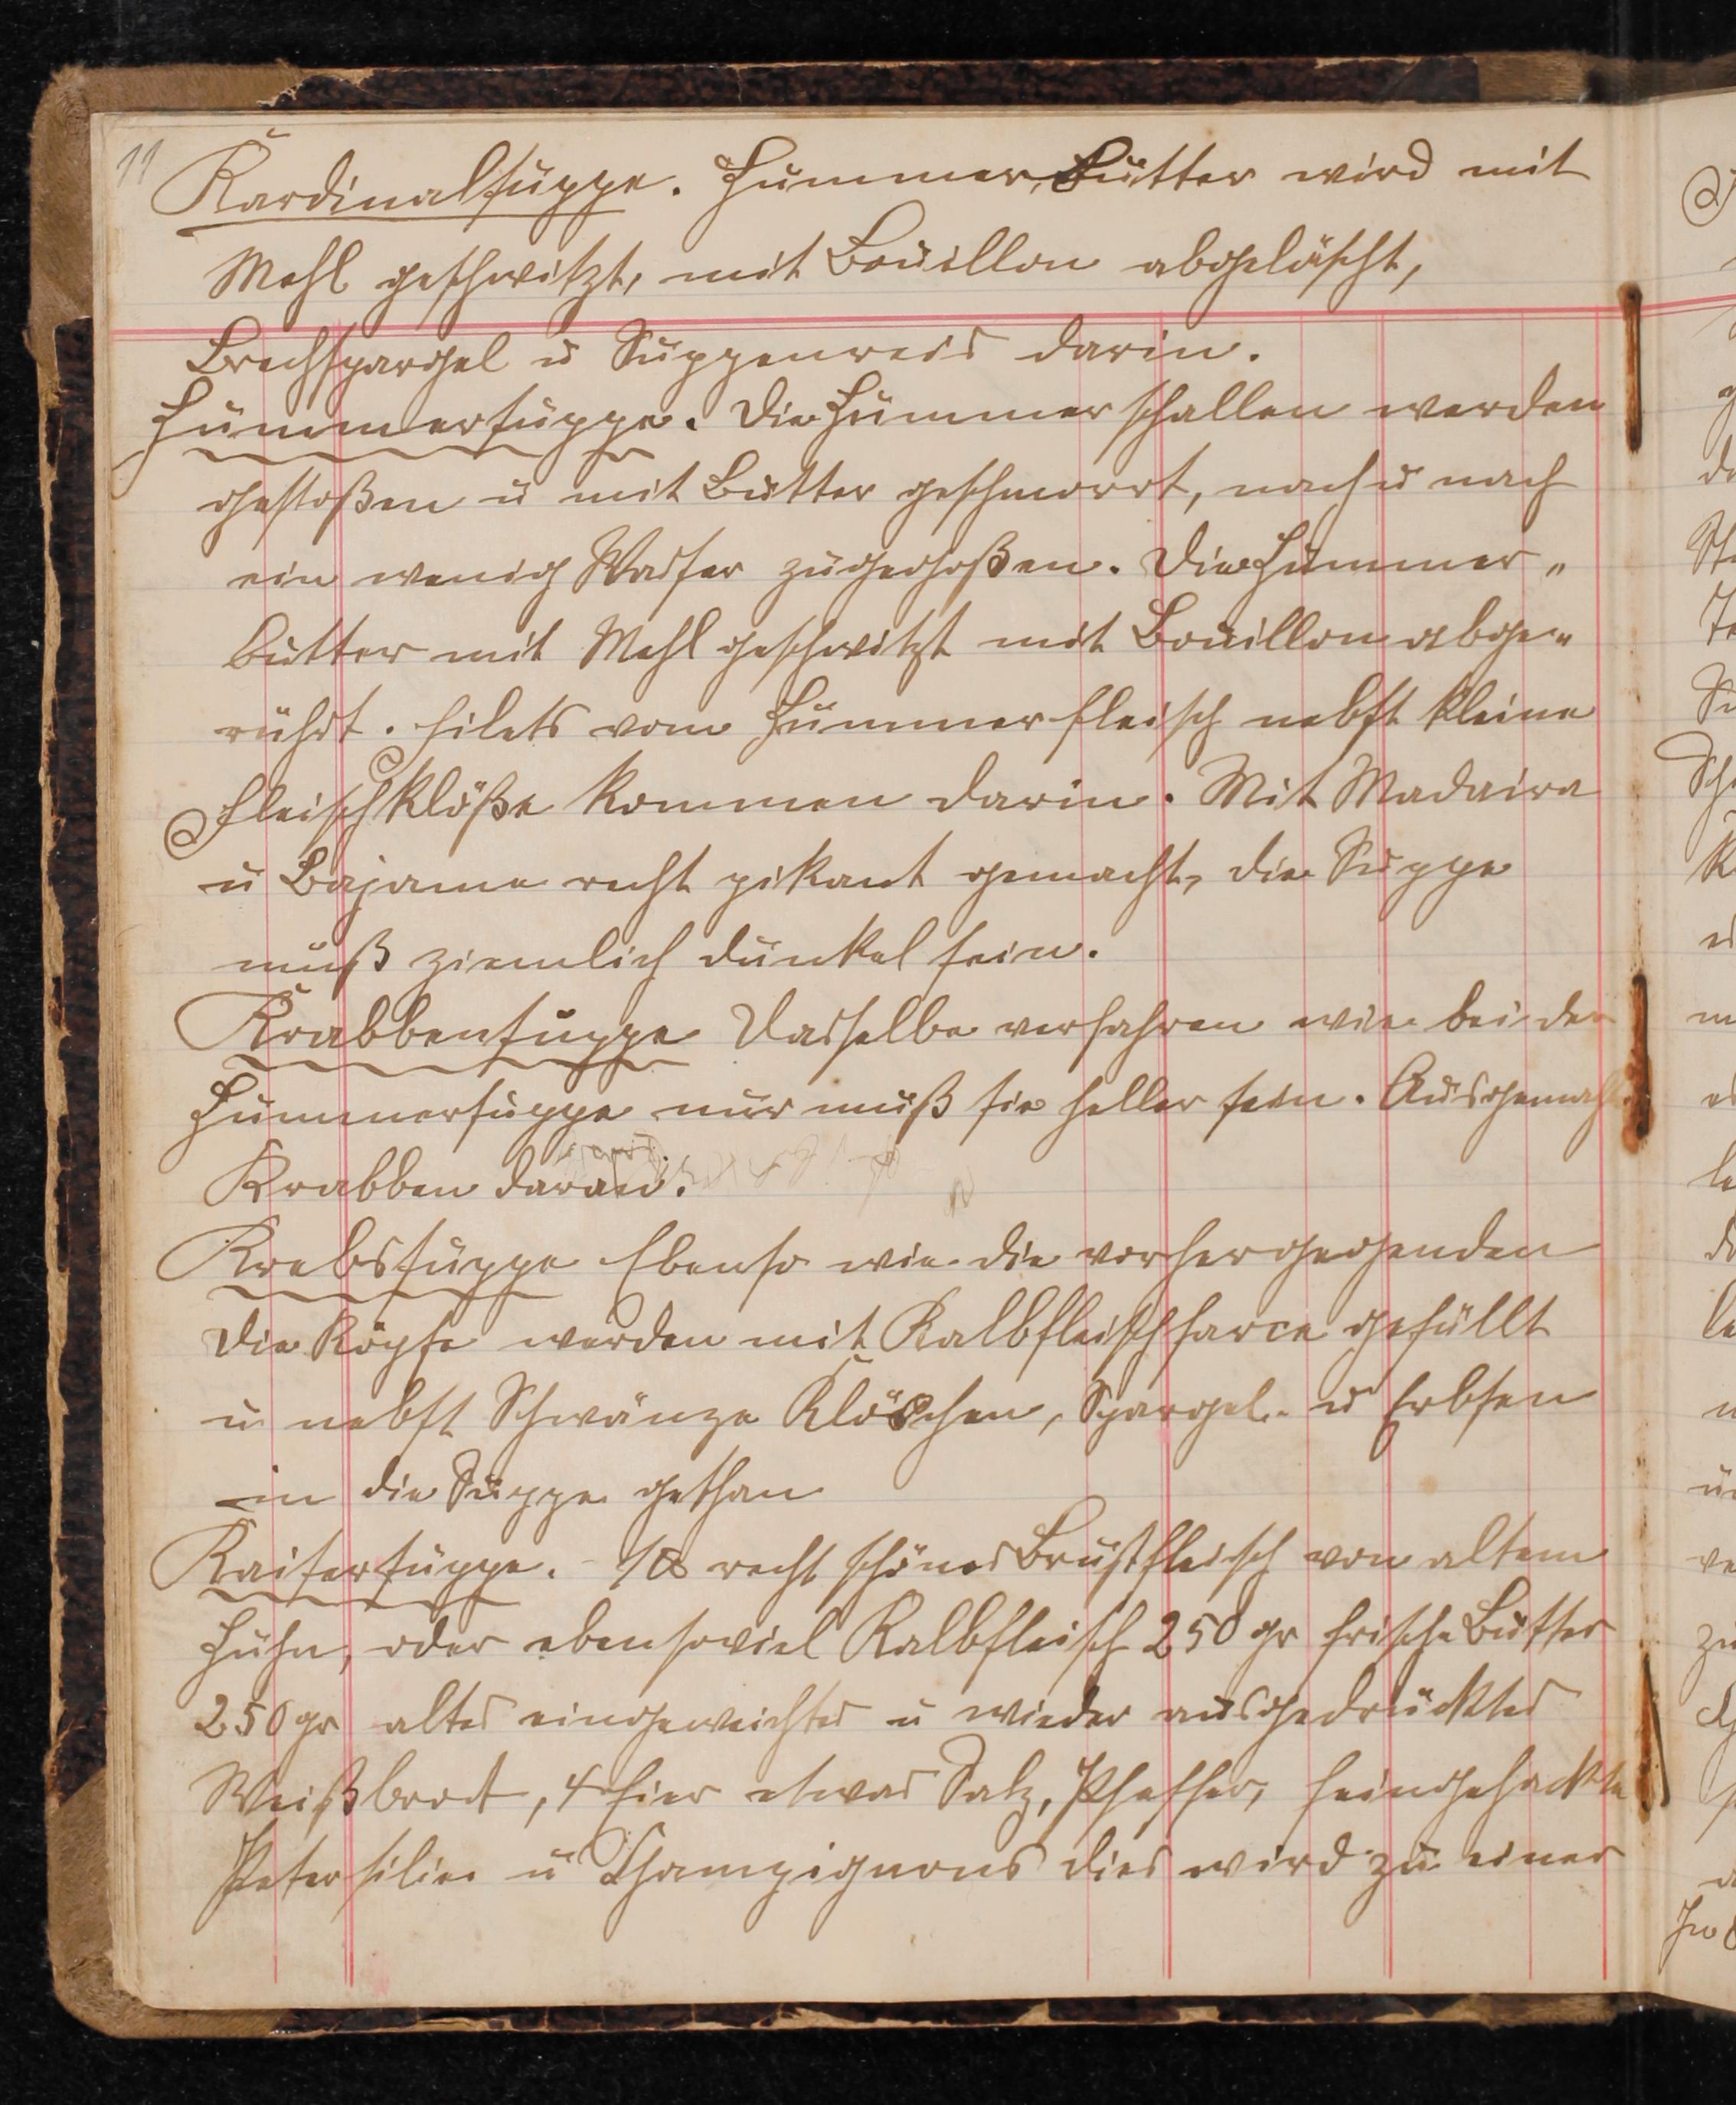 11
Kardinalsuppe. Hummer, Butter wird mit
Mehl geschwitzt, mit Bouillon abgelöscht,
Brechspargel u Suppenreis darin.
Hummersuppe. Die Hummerschallen werden
gestoßen u mit Butter geschmorrt, nach u nach
ein wenig Wasser zugegoßen. Die Hummer„
butter mit Mehl geschwitzt mit Bouillon abge„
rührt. Filets vom Hummerfleisch nebst kleine
Fleischklöße kommen darin. Mit Madaira
u Cajanne recht pikant gemacht, die Suppe
muß ziemlich dunkel sein.
Krabbensuppe Dasselbe verfahren wie bei der
Hummersuppe nur muß sie heller sein. Ausgemachte
Krabben daran.
Krebssuppe Ebenso wie die vorhergegenden
Die Köpfe werden mit Kalbfleischfarce gefüllt
u nebst Schwänze Klöschen, Spargel- u Erbsen
in die Suppe gethan
Kaisersuppe. 1 ℔ recht schönes Brustfleisch von altem
Huhn, oder ebensoviel Kalbfleisch 250 gr frische Butter
250 gr altes eingeweichtes u wieder ausgedrücktes
Weißbrot, 4 Eier etwas Salz, Pfeffer, feingehackte
Petersilie u Champignons dies wird zu einer